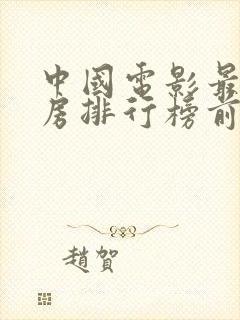 中國電影最
房排行榜前
趙賀